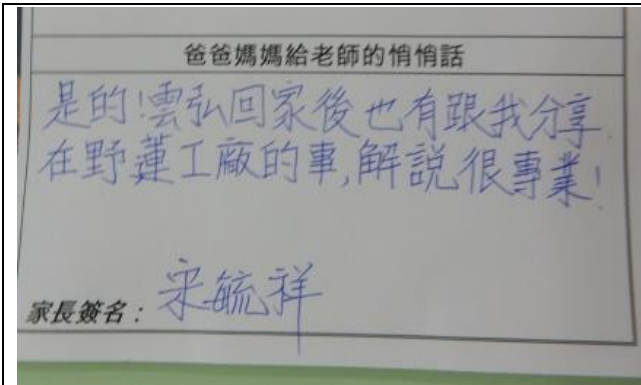 爸爸媽媽給老師的悄悄話
是的!雲弘回家後也有跟我分享
在野蓮工廠的事,解說很專業!
家長簽名:宋毓祥